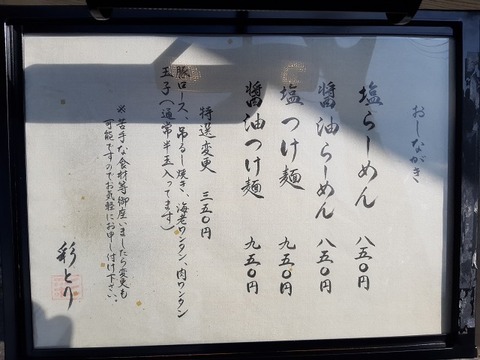 おしながき
塩らーめん 八五〇円
醤油らーめん 八五〇円
塩つけ麺 九五〇円
醤油つけ麺 九五〇円
特選変更 三五〇円
豚ロース、吊るし焼き、海老ワンタン、肉ワンタン
玉子(通常半玉入ってます)
※苦手な食材等御座いましたら変更も
可能ですのでお気軽にお申し付け下さい。
彩とり